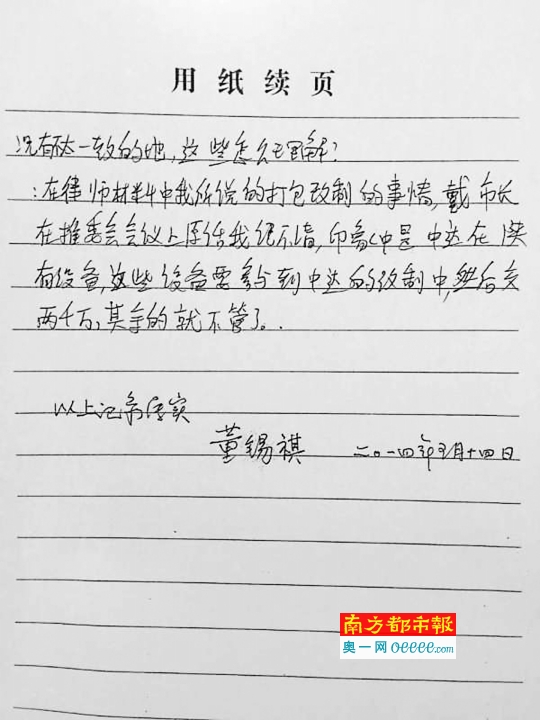 用纸续页
况有不太一致的地,这些怎么理解?
:在律师材料中我所说的打包改制的事情,戴市长
在推委会会议上原话我记不清,印象中是中达在
有设备,这些设备要参与到中达的改制中,然后交
两千万,其余的就不管了。
以上记录属实
董锡祺 二〇一四年五月十四日
南方都市報
奥一网oeeee.com